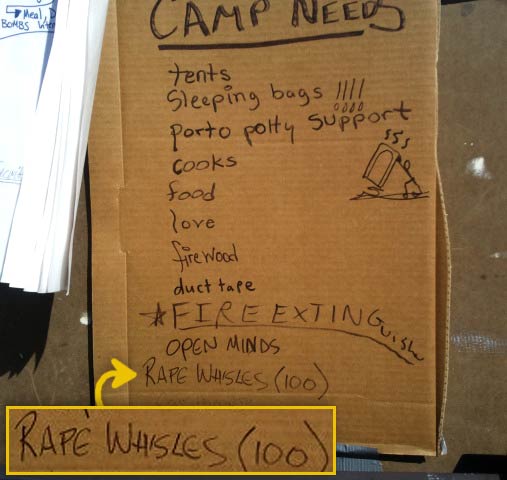 Meal, D
BOMBS
CAMP NEEDS
tents
Sleeping bags !!!!
porto potty support
cooks
food
love
firewood
duct tape
FIRE EXTINGuish
OPEN MINDS
RAPE WHISLES (100)
RAPE WHISLES (100)